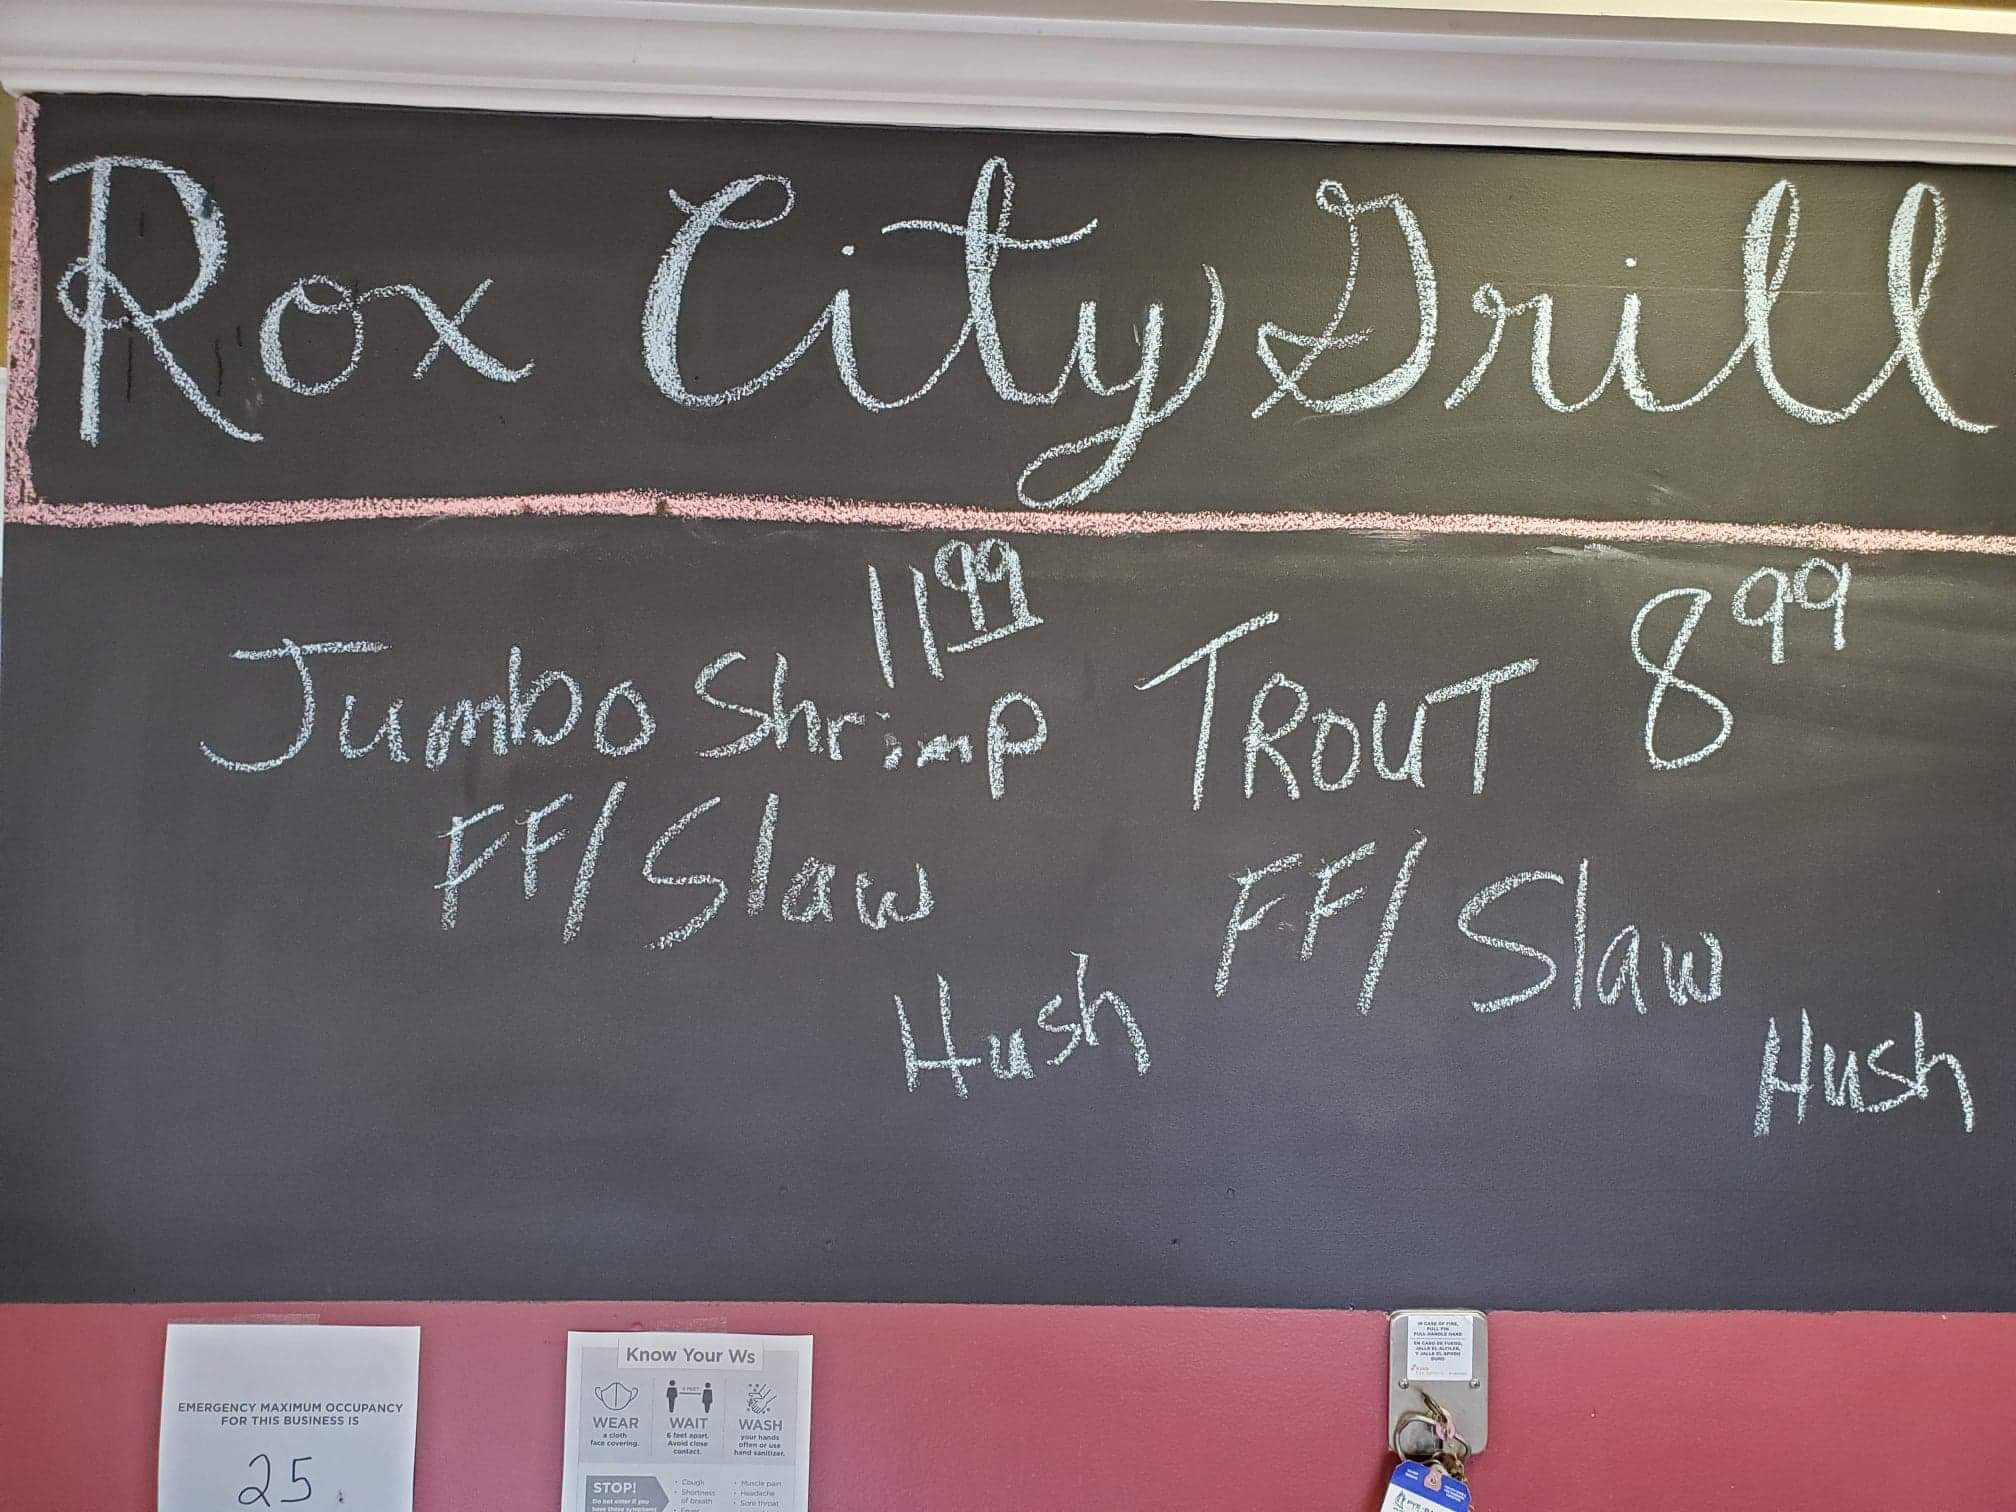 Rox City Grill
11.99
Jumbo Shrimp
FF/Slaw
Hush
TROUT 8.99
FF/Slaw
Hush
EMERGENCY MAXIMUM OCCUPANCY
FOR THIS BUSINESS IS
25
Know Your Ws
6 FEET
WEAR
a cloth
face covering.
WAIT
6 feet apart.
Avoid close
contact.
WASH
your hands
often or use
hand sanitizer.
STOP!
Do not enter if you
have these symptoms
• Cough
• Shortness
of breath
• Fever
• Muscle pain
• Headache
• Sore throat
IN CASE OF FIRE,
PULL PIN
PULL HANDLE HARD
EN CASO DE FUEGO,
JALLE EL ALFILER,